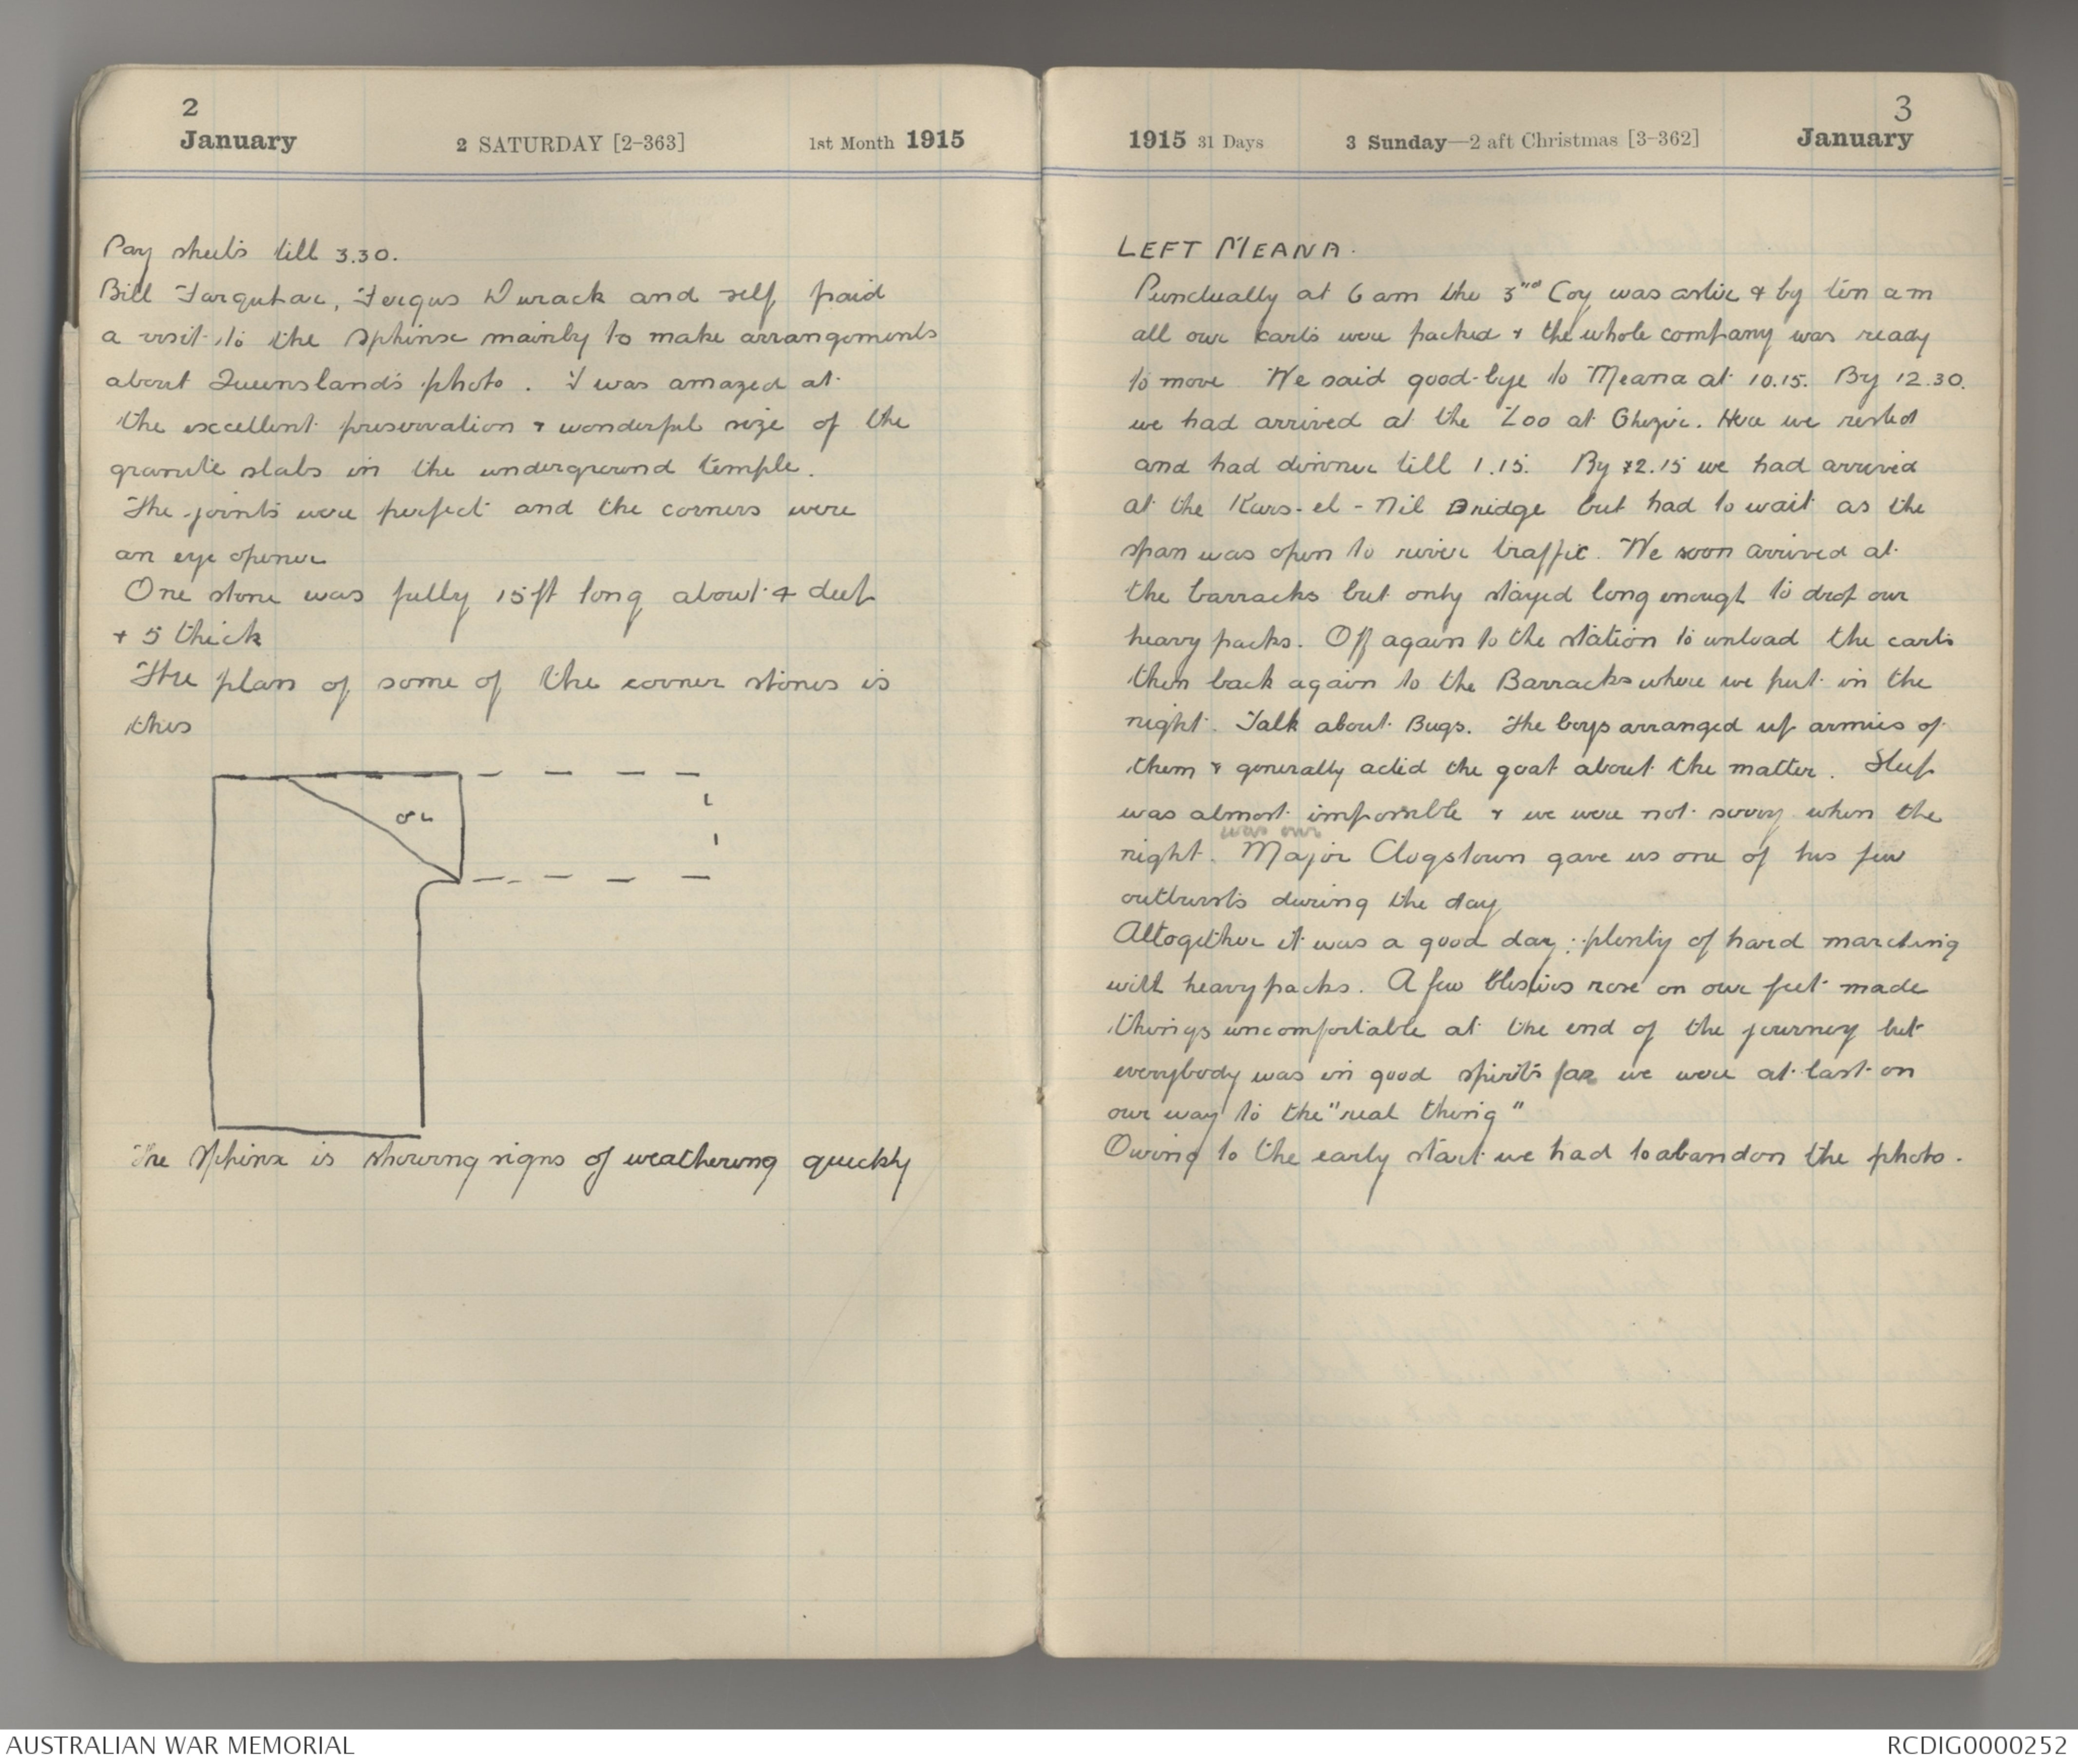 2
January 2 SATURDAY [2-363] 1st Month 1915
Pay sheets till 3.30.
Bill Farquhar, Fergus Durack and self paid
a visit to the Sphinx mainly to make arrangements
about Queenslands photo. I was amazed at
the excellent preservation & wonderful size of the
granite slabs in the underground temple.
The joints were perfect and the corners were
an eye opener
One stone was fully 15ft long about 4 deep
+ 5 thick
The plan of some of the corner stones is
this
or
The Sphinx is showing signs of weathering quickly
3
1915 31 Days 3 Sunday—2 aft Christmas [3-362] January
LEFT MEANA.
Punctually at 6 am the 3rd Coy was astir & by ten am
all our carts were packed & the whole company was ready
to move We said good-bye to Meana at 10.15. By 12.30.
we had arrived at the Zoo at Ghezir. Here we rested
and had dinner till 1.15. By 2.15 we had arrived
at the Kars-el-Nil Bridge but had to wait as the
span was open to river traffic. We soon arrived at
the barracks but only stayed long enough to drop our
heavy packs. Off again to the station to unload the carts
then back again to the Barracks where we put in the
night. Talk about Bugs. The boys arranged up armies of
them & generally acted the goat about the matter. Sleep
was almost impossible & we were not sorry when the
was over
night. Major Clogstown gave us one of his few
outbursts during the day
Altogether it was a good day; plenty of hard marching
with heavy packs. A few blisters rose on our feet made
things uncomfortable at the end of the journey but
everybody was in good spirits for we were at last on
our way to the "real thing"
Owing to the early start we had to abandon the photo.
AUSTRALIAN WAR MEMORIAL RCDIG0000252